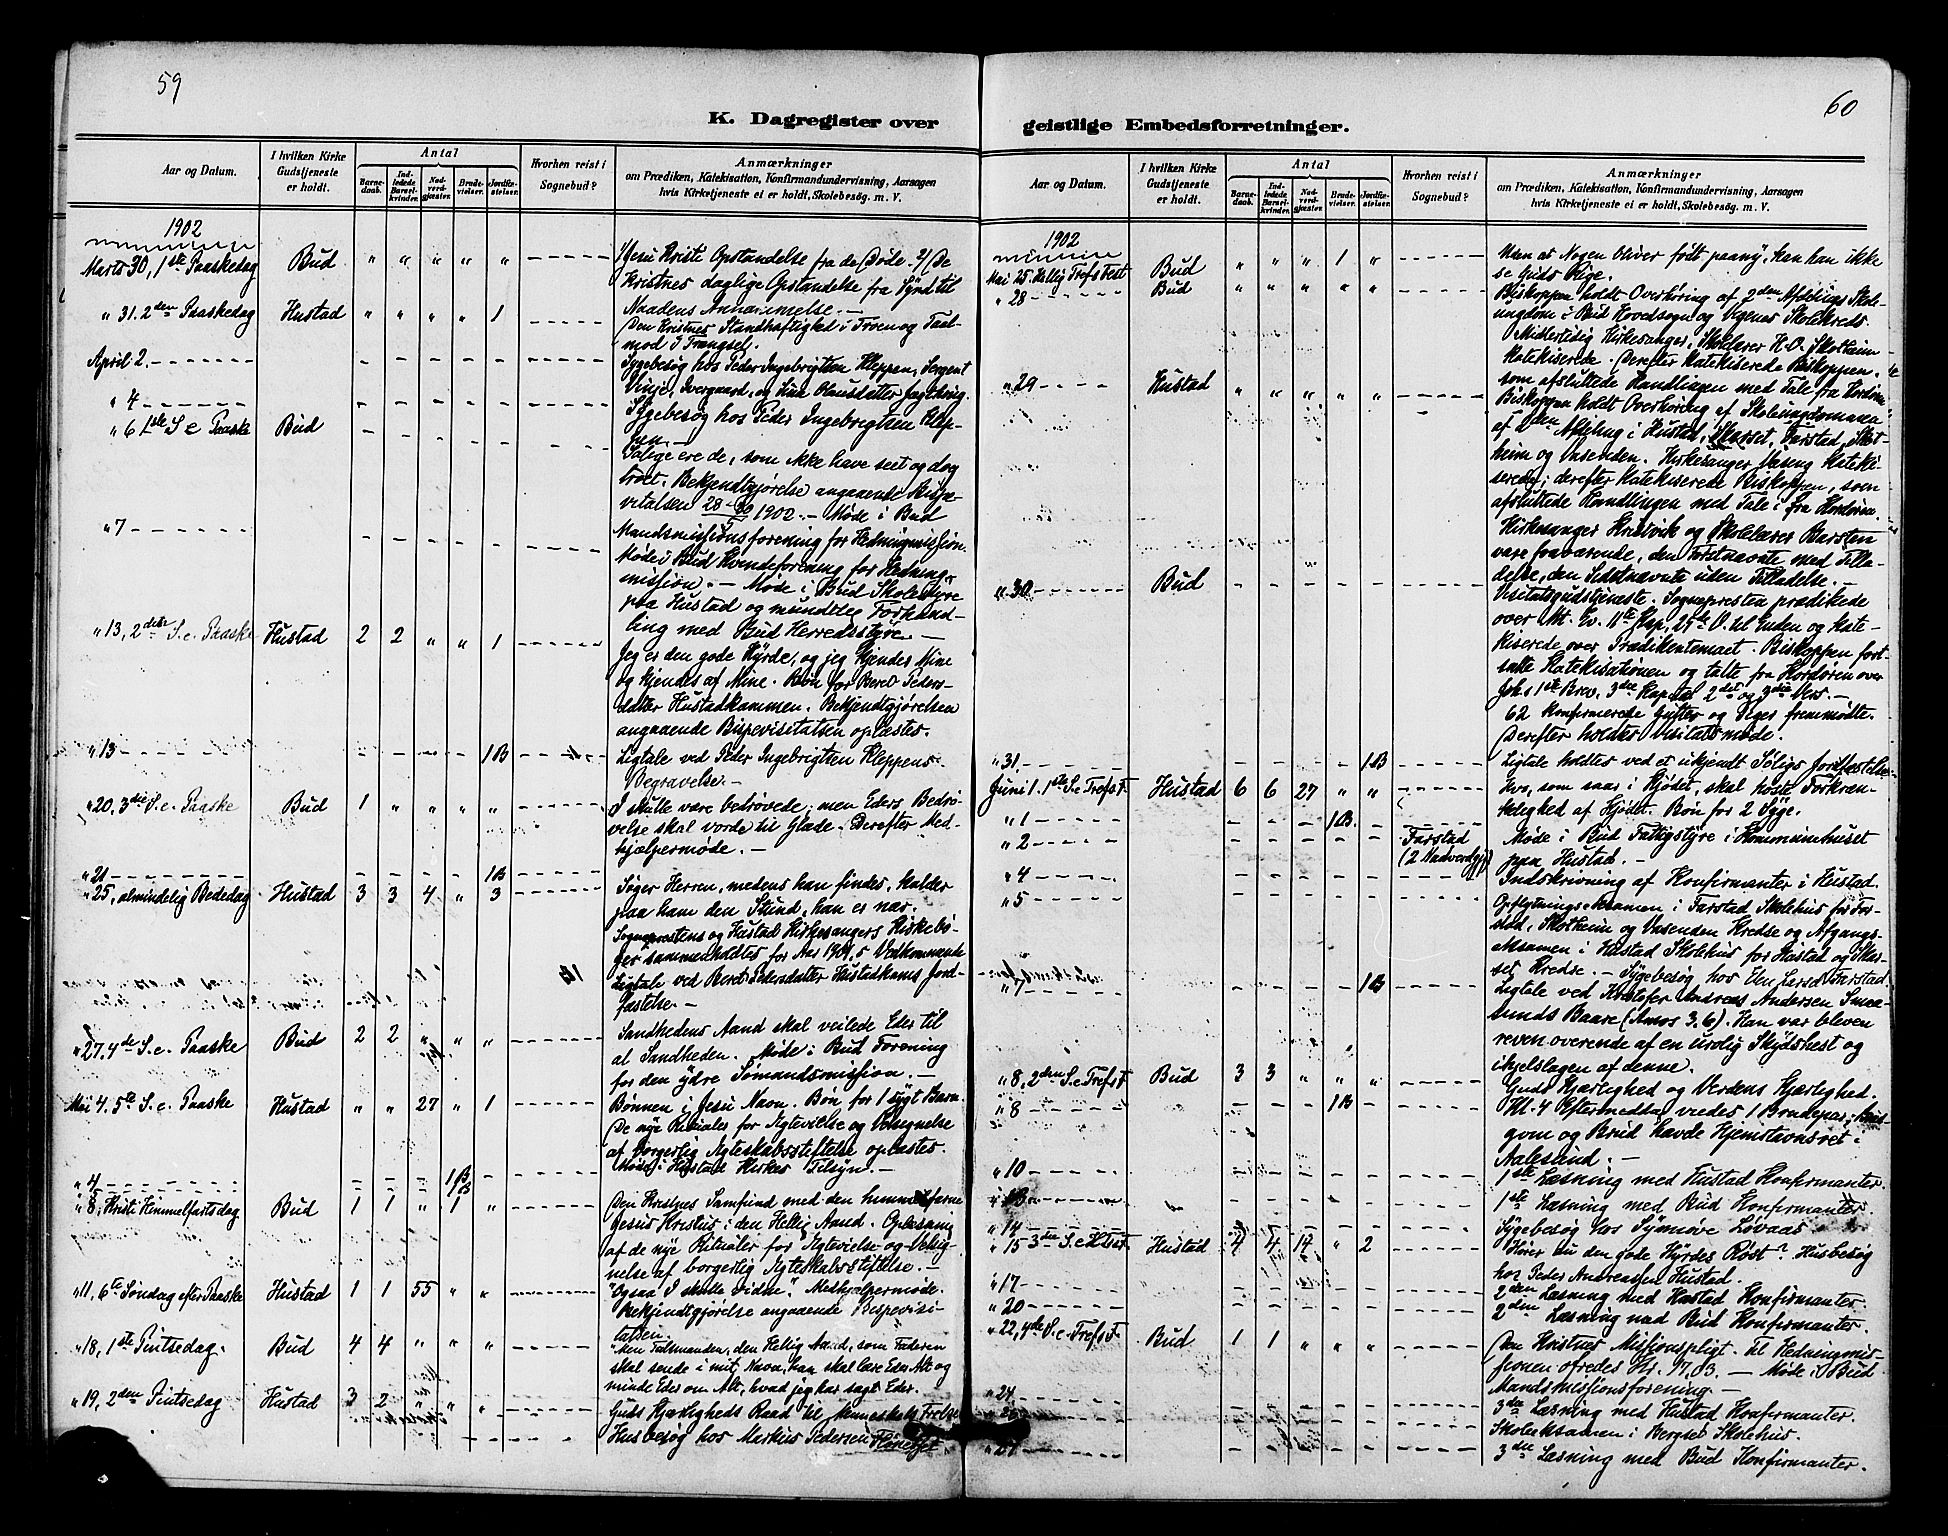 59
K. Dagregister over
Aar og Datum.
I hvilken Kirke
Gudstjeneste
er holdt.
Antal
Barne-
daab.
Ind-
ledede
Barsel-
kvinder.
Nad-
verd-
gjæster.
Brude-
vielser.
Jordfæ-
stelser.
Hvorhen reist i
Sognebud?
Anmærkninger
om Prædiken, Katekisation, Konfirmandundervisning, Aarsagen
hvis Kirketjeneste ei er holdt, Skolebesög. m. V.
1902
Marts 30, 1ste Paaskedag Bud " " " " " 1/ Jesu Kristi Opstandelse fra de Døde. 2/ De
Kristnes daglige Opstandelse fra Synd til
" 31. 2den Paaskedag Hustad " " " " 1 Naadens Annammelse. —
Den Kristnes Standhaftighed i Troen og Taal-
mod i Trængsel.
April 2. Sygebesøg hos Peder Ingebrigtsen Kleppen, Sergent
Vinje, Ivergaard, og
" 4 Sygebesøg hos Peder Ingebrigtsen Klep-
" 6 1ste S. e. Paaske Bud pen. —
Salige ere de, som ikke have seet og dog
troet. Bekjendtgjørelse angaaende Bispe-
vitatsen 28-30 1902. — Møde i Bud
" 7 Mandsmissionsforening for Hedningmission.
Møde i Bud Kvendeforening for Hednings-
mission. — Møde i Bud Skolestyre
paa Hustad og mundtleg Forhand-
" 13, 2den S. e. Paaske Hustad 2 2 " " 1 ling med Bud Herredsstyre —
Jeg er den gode Hyrde, og jeg kjendes Mine
og kjendes af Mine. Bøn for Beret Peders-
datter Hustadkammen. Bekjendtgjørelsen
angaaende Bispevisitatsen oplæstes.
" 13 1B Ligtale ved Peder Ingebrigtsen Kleppens
Begravelse. —
" 20, 3die S. e. Paaske Bud 1 " " " " I skulle være bedrøvede; men Eders Bedrø-
velse skal vorde til Glæde. Derefter Med-
hjælpermøde. —
" 21 1B
" 25, almindelig Bededag Hustad 3 3 4 " 3 Søger Herren, medens han findes, kalder
paa ham den Stund, han er nær.
Sognepræstens og Hustad Kirkesangers Kirkebø-
ger sammenholdtes for Aar 1901,
Ligtale ved Beret Pedersdatter Hustadkams Jord-
fæstelse. —
" 27. 4de S. e. Paaske Bud 2 2 " " " Sandhedens Aand skal veilede Eder til
al Sandheden. Møde i Bud Forening
for den ydre Sømandsmission. —
Mai 4. 5te S. e. Paaske Hustad " " 27 " 1 Bønnen i Jesu Navn. Bøn for 1 sygt Barn.
De nye Ritualer for Ægtevielse og Velsignelse
af borgerlig Ægteskabsstiftelse oplæstes.
Møde i Hustad Kirkes Tilsyn. —
" 4 1B
" 8, Kristi Himmelfartsdag Bud 1 1 " 1 " Den Kristnes Samfund med den himmelfarne
Jesus Kristus i den Hellig Aand. Oplæsning
af de nye Ritualer for Ægtevielse og Velsig-
nelse af borgerlig Ægteskabsstiftelse. —
" 11. 6te Søndag efter Paaske Hustad 1 1 55 " " "Ogsaa I skulle vidne". Medhjælpermøde.
Bekjendtgjørelse angaaende Bispevisi-
tatsen.
" 18, 1ste Pintsedag. Bud 4 4 " " " "Men Talsmanden, den Hellig Aand, som Faderen
skal sende i mit Navn, han skal lære Eder Alt og
minde Eder om Alt, hvad jeg har sagt Eder.
" 19, 2den Pintsedag Hustad 3 2 " " " Guds Kjærligheds Raad til Menneskets Frelse
Husbesøg hos Markus Pedersen
60
geistlige Embedsforretninger.
Aar og Datum.
I hvilken Kirke
Gudstjeneste
er holdt.
Antal
Barne-
daab.
Ind-
ledede
Barsel-
kvinder.
Nad-
verd-
gjæster.
Brude-
vielser.
Jordfæ-
stelser.
Hvorhen reist i
Sognebud?
Anmærkninger
om Prædiken, Katekisation, Konfirmandundervisning, Aarsagen
hvis Kirketjeneste ei er holdt, Skolebesög. m. V.
1902
Mai 25. Hellig Tref's Fest Bud " " " 1 " Uden at Nogen bliver født paany, kan han ikke
se Guds Rige.
" 28 Bud " " " " " Biskoppen holdt Overhøring af 2den Afdelings Skole-
ungdom i Bud Hovedsogn og Vegenes Skolekreds.
Midlertidig Kirkesanger, Skolelærer H. O. Skotheim
katekiserede. Derefter katekiserede Biskoppen.
som afsluttede Handlingen med Tale fra Kordøren
" 29 Hustad " " " " " Biskoppen holdt Overhøring af Skoleungdommen
af 2den Afdeling i Hustad, Skarset, Farstad, Skot-
heim og Vasenden. Kirkesanger Vaseng kateki-
serede; derefter katekiserede Biskoppen, som
afsluttede Handlingen med Tale i fra Kordøren
Kirkesanger Hustvik og Skolelærer Bersten
vare fraværende, den Førstnævnte med Tilla-
delse, den Sidstnævnte uden Tilladelse. —
" 30 Bud Visitatsgudstjeneste. Sognepresten prædikede
over Mt. Ev. 11te Kap. 25te V. til Enden og kate-
kiserede over Prædikentemaet. Biskoppen fort-
satte Katekisationen og talte fra Kordøren over
Johs 1ste Brev. 3die Kapitel 2det og 3die Vers. —
62 konfirmerede Gutter og Piger fremmødte.
Derefter holdtes Visitatsmøde.
" 31 1B Ligtale holdtes ved et ukjendt Søligs Jordfæstelse.
Juni 1. 1ste S. e. Tref's F. Hustad 6 6 27 " " Hvo, som saar i Kjødet, skal høste Forkræn-
kelighed af Kjødet. Bøn for 2 Syge.
" 1 1B.
" 2 Farstad
(2 Nadverdgj.) Møde i Bud Fattigstyre i Kommunehuset
paa Hustad. —
" 4 Indskrivning af Konfirmanter i Hustad.
" 5 Opflytningseksamen i Farstad Skolehus for Far-
stad, Skotheim og Vasenden Kredse og Afgangs-
eksamen i Hustad Skolehus for Hustad og Skar-
set Kredse. — Sygebesøg hos Elen Larsd. Farstad
" 7 1B Ligtale ved Kristofer Andreas Andersen
sunds Baare (Amos 3.6). Han var bleven
reven overende af en urolig Skydshest og
ihjelslagen af denne.
" 8, 2den S. e. Tref's F. Bud 3 3 " " " Guds Kjærlighed og Verdens Kjærlighed.
" 8 1B Kl. 4 Eftermeddag viedes 1 Brudepar,
gom og Brud havde Hjemstavnsret i
Aalesund. —
" 10 1ste Læsning med Hustad Konfirmanter.
" 13 1ste Læsning med Bud Konfirmanter
" 14 Sygebesøg hos Synnøve Løvaas
" 15 3die S. e. Tref's F. Hustad 4 4 14 " 2 Hører du den gode Hyrdes Røst? Husbesøg
hos Peder Andreassen Hustad.
" 17 2den Læsning med Hustad Konfirmanter.
" 20 2den Læsning med Bud Konfirmanter.
" 22, 4de S. e. Tref's F. Bud 1 1 " " " Den Kristnes Missionspligt. Til Hedningmis-
sionen ofredes Kr. 17,03. — Møde i Bud
Mandsmissionsforening —
" 24 3die Læsning med Hustad Konfirmanter.
" 26 Skoleeksamen i Bergset Skolehus.
" 27 3die Læsning med Bud Konfirmanter.